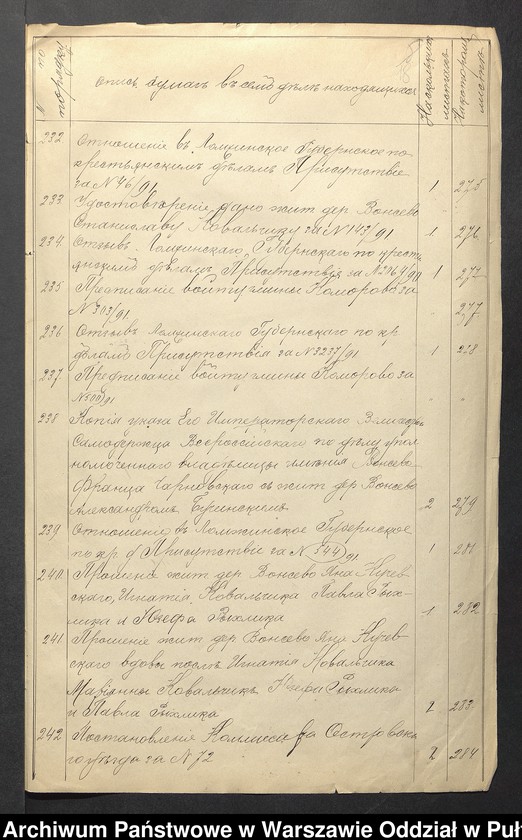 № по порядку
Опись бумагъ въ семъ дѣлѣ находящихся
На сколькихъ листахъ
На которомъ листѣ
232 Отношеніе въ Ломжинское Губернское по
крестьянскимъ дѣламъ Присутствіе
за № 46/91 1 275
233 Удостовѣреніе, дано жит. дер. Вонсево
Станиславу Ковальчику за № 147/91 1 276
234 Отзывъ Ломжинскаго Губернскаго по крест
янскимъ дѣламъ Присутствія за № 1 277
235 Предписаніе войту гмины Коморово за
№ 303/91 " 277
236 Отзывъ Ломжинскаго Губернскаго по кр.
дѣламъ Присутствія за № 3237/91 1 278
237 Предписаніе войту гмины Коморово за
№ 500/91 " "
238 Копія указа Его Императорскаго Величества
Самодержца Всероссійскаго по дѣлу упол
номоченнаго владѣлицы имѣнія Вонсево
Франца Чарновскаго съ жит. дер. Вонсево
Александромъ 2 279
239 Отношеніе въ Ломжинское Губернское
по кр. д. Присутствіе за № 544/91 1 281
240 Прошеніе жит. дер. Вонсево Яна Кучев
скаго, Игнатія Ковальчика Павла Рых
лика и Юзефа Рыхлика 1 282
241 Прошеніе жит. дер. Вонсево Яна Кучев
скаго вдовы послѣ Игнатія Ковальчика
Маріанны Ковальчикъ Юзефа Рыхлика
и Павла Рыхлика 1 283
242 Постановленіе Коммиссара Островска
го уѣзда за № 72 2 284
Archiwum Państwowe w Warszawie Oddział w Puł